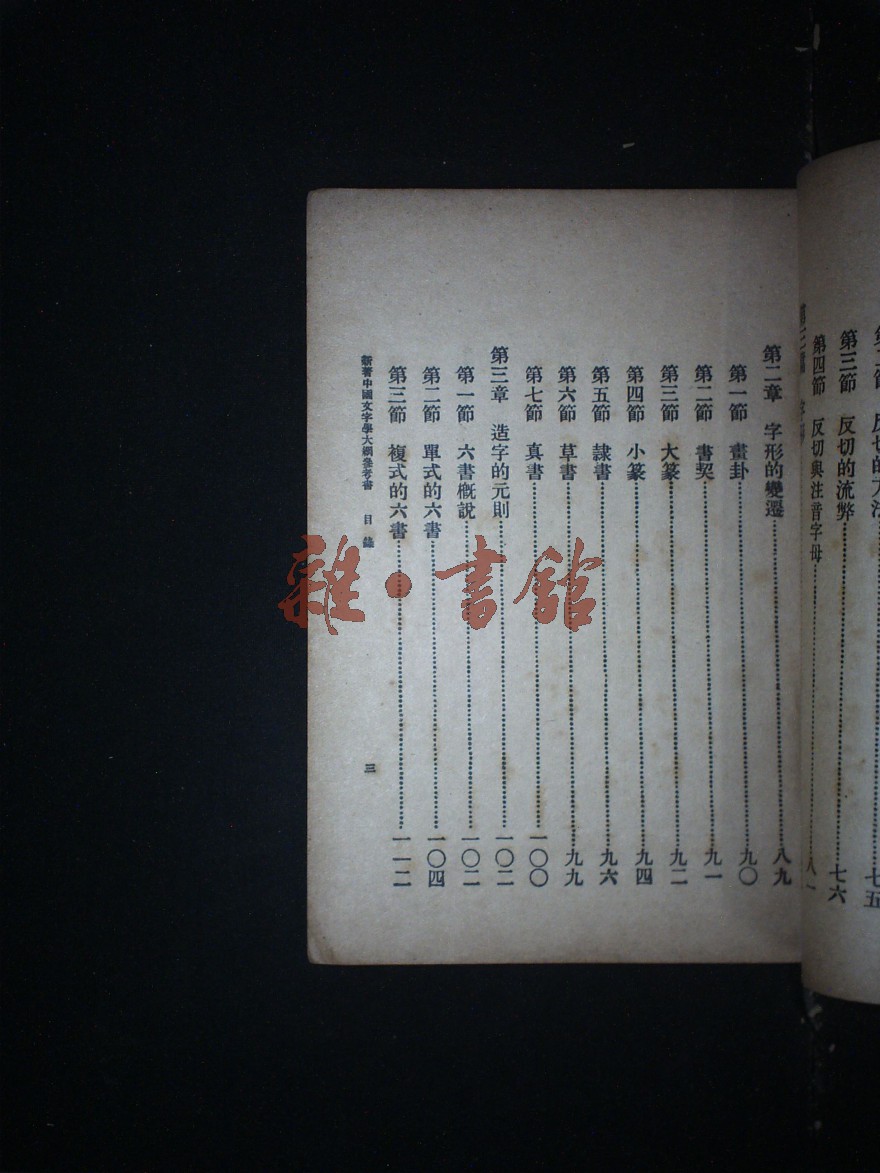 反切的方法……七五
第三節 反切的流弊……七六
第四節 反切與注音字母……八一
第二章 字形的變遷……八九
第一節 畫卦……九〇
第二節 書契……九一
第三節 大篆……九二
第四節 小篆……九四
第五節 隸書……九六
第六節 草書……九九
第七節 真書……一〇〇
第三章 造字的元則……一〇二
第一節 六書概說……一〇二
第二節 單式的六書……一〇四
第三節 複式的六書……一一二
新著中國文字學大綱參考書 目錄 三
雜·書館